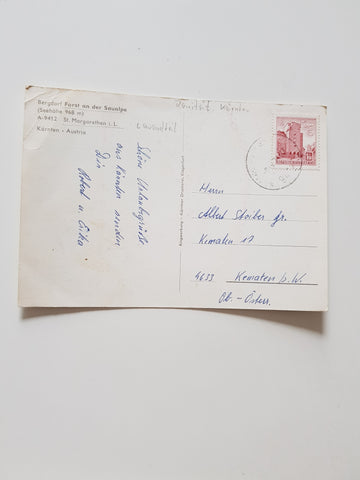 Bergdorf Forst an der Saualpe
(Seehöhe 968 m)
A-9412 St. Margarethen i. L.
Kärnten - Austria
Lavanttal
Kärnten
Schöne Urlaubsgrüße
aus Kärnten senden
Die
Robert u. Erika
Herrn
Albert Stoiber jr.
Kematen 17
4633 Kematen b. W.
Ob.-Österr.